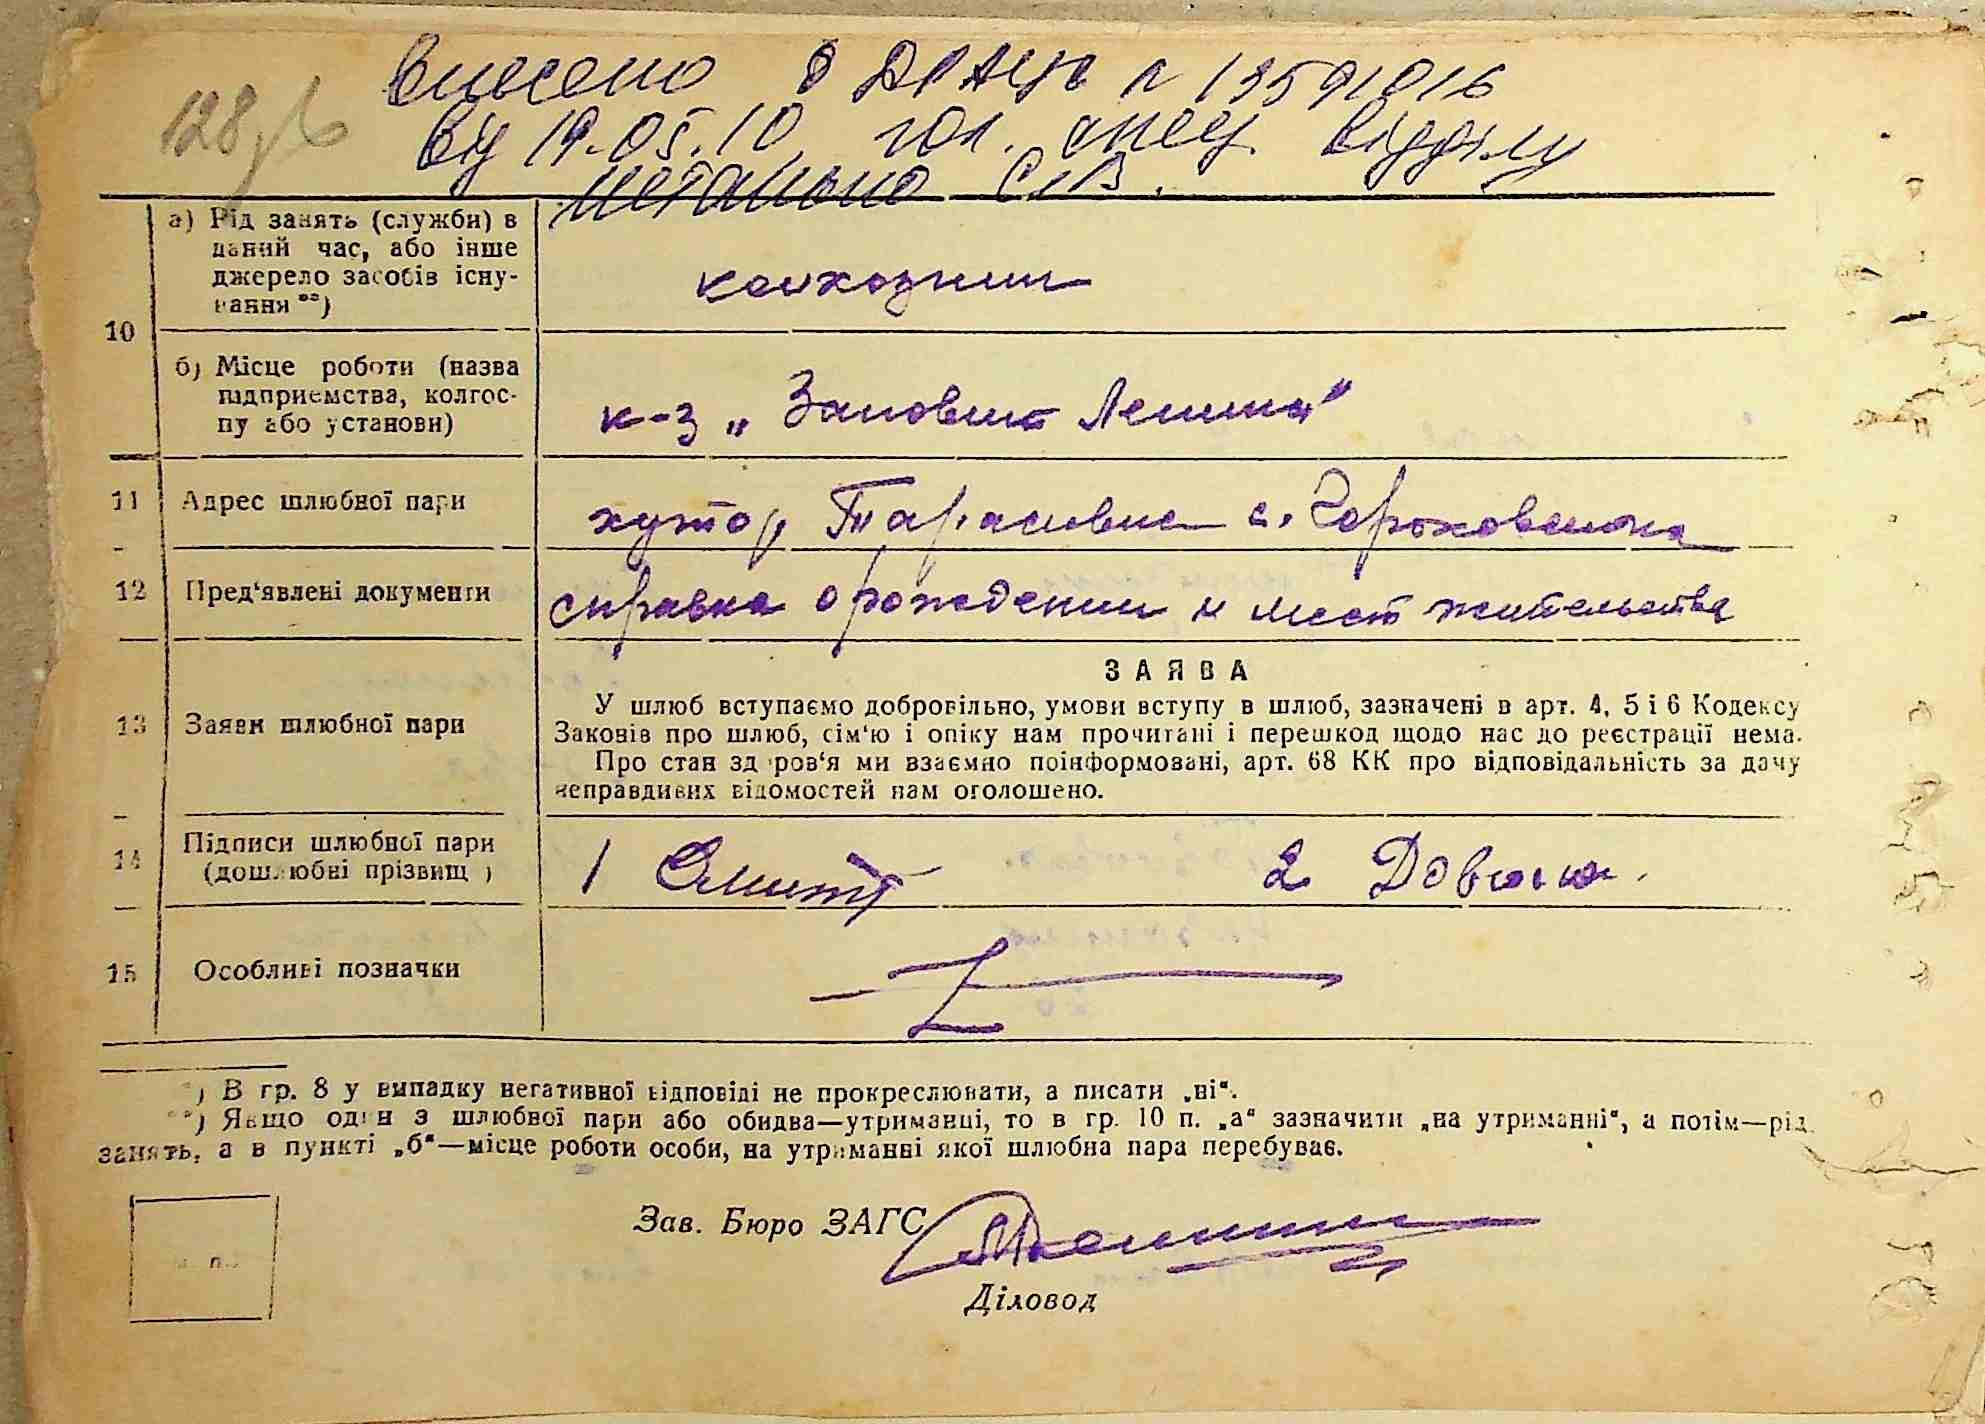 Внесено в ДРАЦС № 13591016
від 19.05.10 гол. спец. відділу
С.В.
128 зв
10
а) Рід занять (служби) в
даний час, або інше
джерело засобів існу-
вання **)
колхозник
б) Місце роботи (назва
підприємства, колгос-
пу або установи)
к-з „Заповит Ленина"
11 Адрес шлюбної пари
хутор Тарасивка с.
12 Пред'явлені документи
справка о рождении и мест жительства
13 Заяви шлюбної пари
ЗАЯВА
У шлюб вступаємо добровільно, умови вступу в шлюб, зазначені в арт. 4, 5 і 6 Кодексу
Законів про шлюб, сім'ю і опіку нам прочитані і перешкод щодо нас до реєстрації нема.
Про стан здоров'я ми взаємно поінформовані, арт. 68 КК про відповідальність за дачу
неправдивих відомостей нам оголошено.
14 Підписи шлюбної пари
(дошлюбні прізвищ )
1 2
15 Особливі позначки
*) В гр. 8 у випадку негативної відповіді не прокреслювати, а писати „ні“.
**) Якщо один з шлюбної пари або обидва—утриманці, то в гр. 10 п. „а“ зазначити „на утриманні“, а потім—рід
занять, а в пункті „б“—місце роботи особи, на утриманні якої шлюбна пара перебуває.
Зав. Бюро ЗАГС
Діловод
м. п.